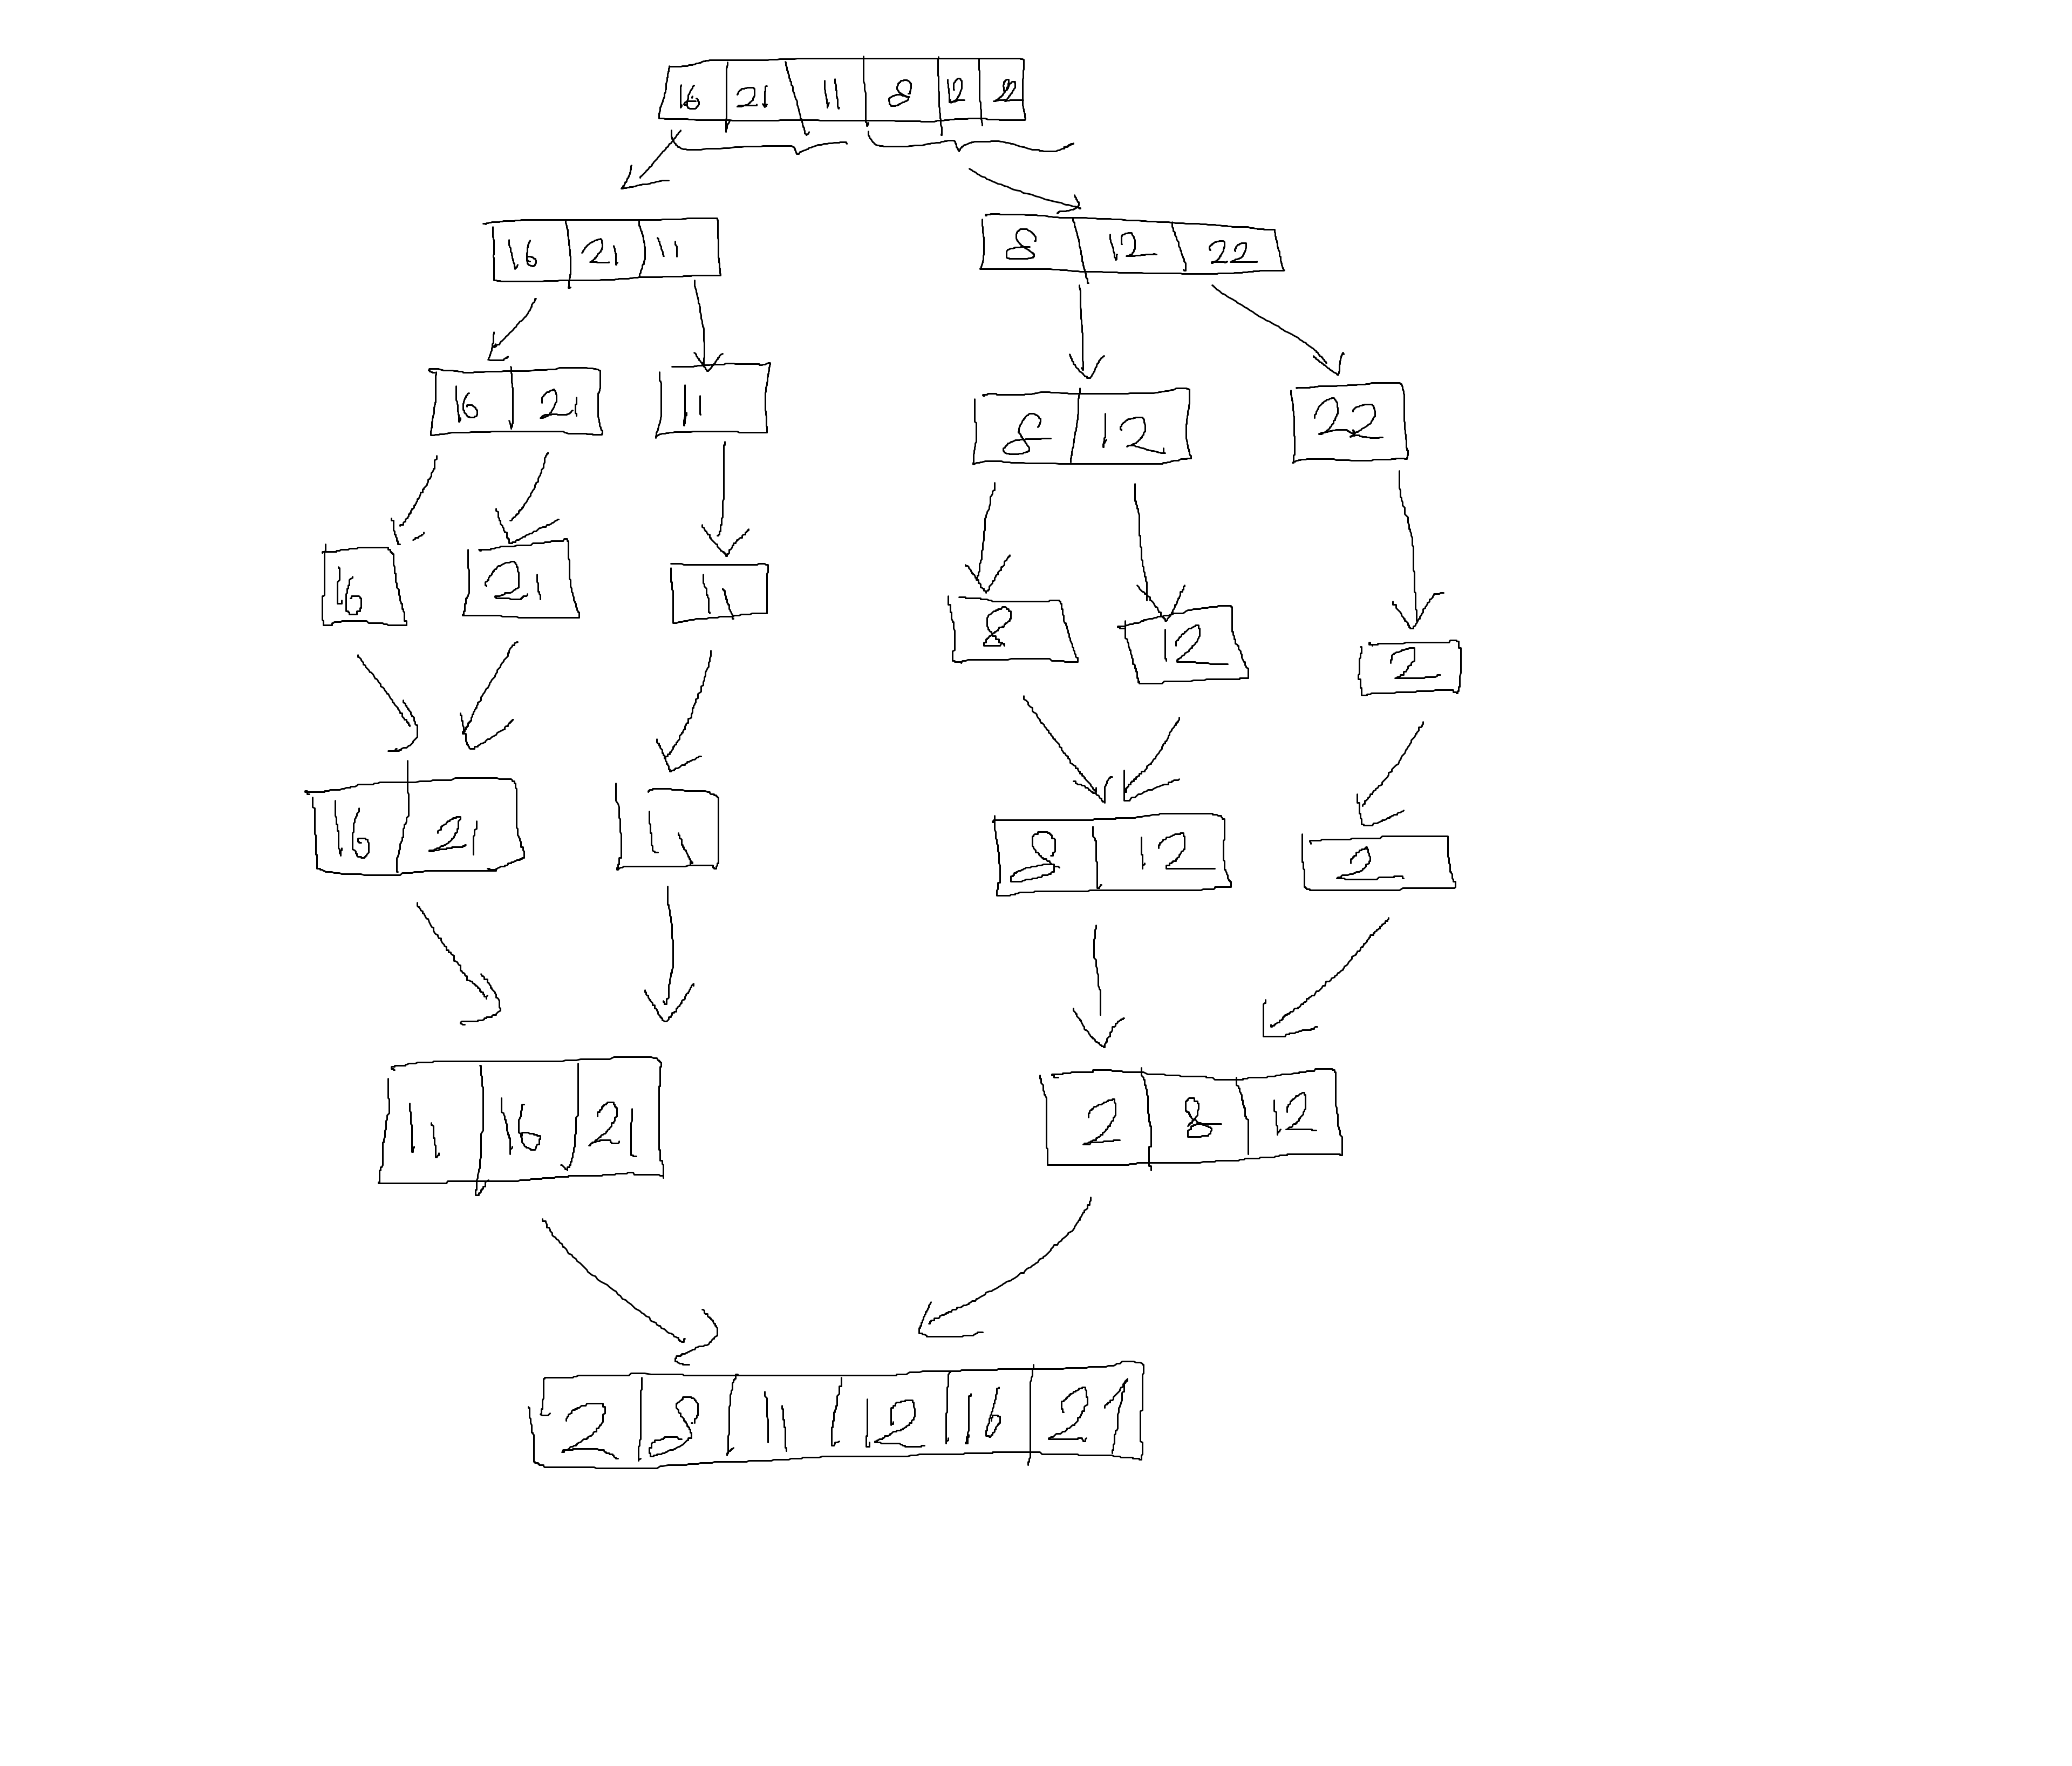 16 21 11 8 12 22
16 21 11 8 12 22
16 21 11 8 12 22
16 21 11 8 12 2
16 21 11 8 12 2
11 16 21 2 8 12
2 8 11 12 16 21